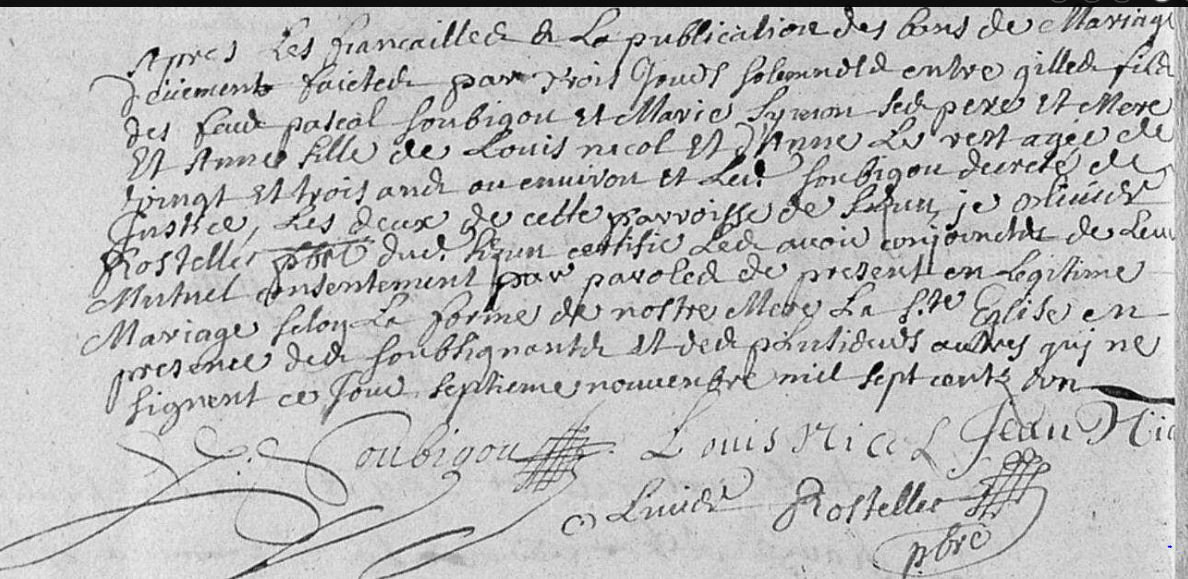 Apres Les fiancailles & La publication des bans de Mariage
deuement faictes par trois Jours solemnels entre gilles fils
des feus pascal soubigou et Marie Symon ses pere et Mere
Et Anne fille de Louis nicol Et d'Anne Le vert agée de
vingt et trois ans ou environ et Led. soubigou decreté de
Justice, Les deux de cette parroisse de Sizun, je ollivier
Rostellec pbre dud. Sizun certifie Les avoir conjoinctes de Leur
Mutuel consentement par paroles de present en Legitime
Mariage selon La forme de nostre Mere La s.te Eglise en
presence des soubsignants Et des plusieurs autres qui ne
signent ce Jour septieme nouvenbre mil sept cents
Soubigou Louis Nicol Jean Nic
oLivier Rostellec
pbre